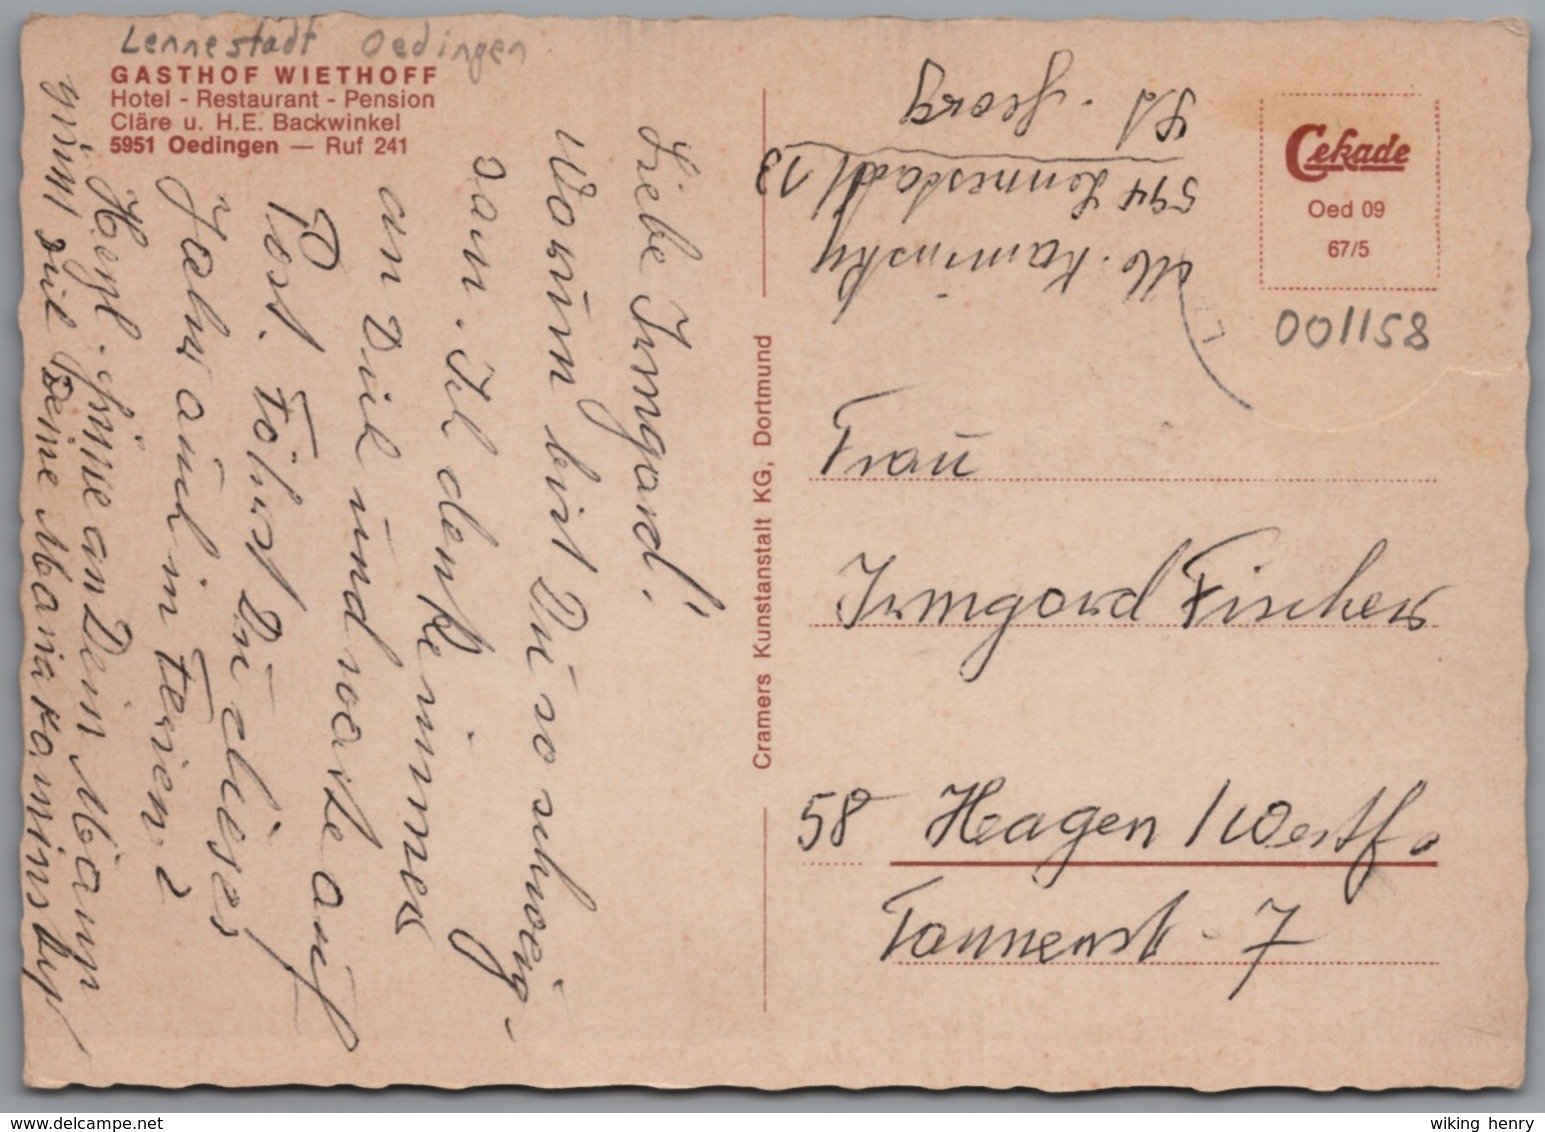 Lennestadt Oedingen
GASTHOF WIETHOFF
Hotel - Restaurant - Pension
Cläre u. H.E. Backwinkel
5951 Oedingen — Ruf 241
Liebe Irmgard!
Warum bist Du so schweig-
sam. Ich denke immer
an Dich und warte auf
Post. Fährst Du dieses
Jahr auch in Ferien?
Herzl. Grüße an Dein Mann
grüßt Dich Deine Maria Kaminsky
Cramers Kunstanstalt KG, Dortmund
Abs. Kaminsky
594 Lennestadt 13
St. Georg
Cekade
Oed 09
67/5
001158
Frau
Irmgard Fischer
58 Hagen / Westf.
Tannenstr. 7
wiking henry